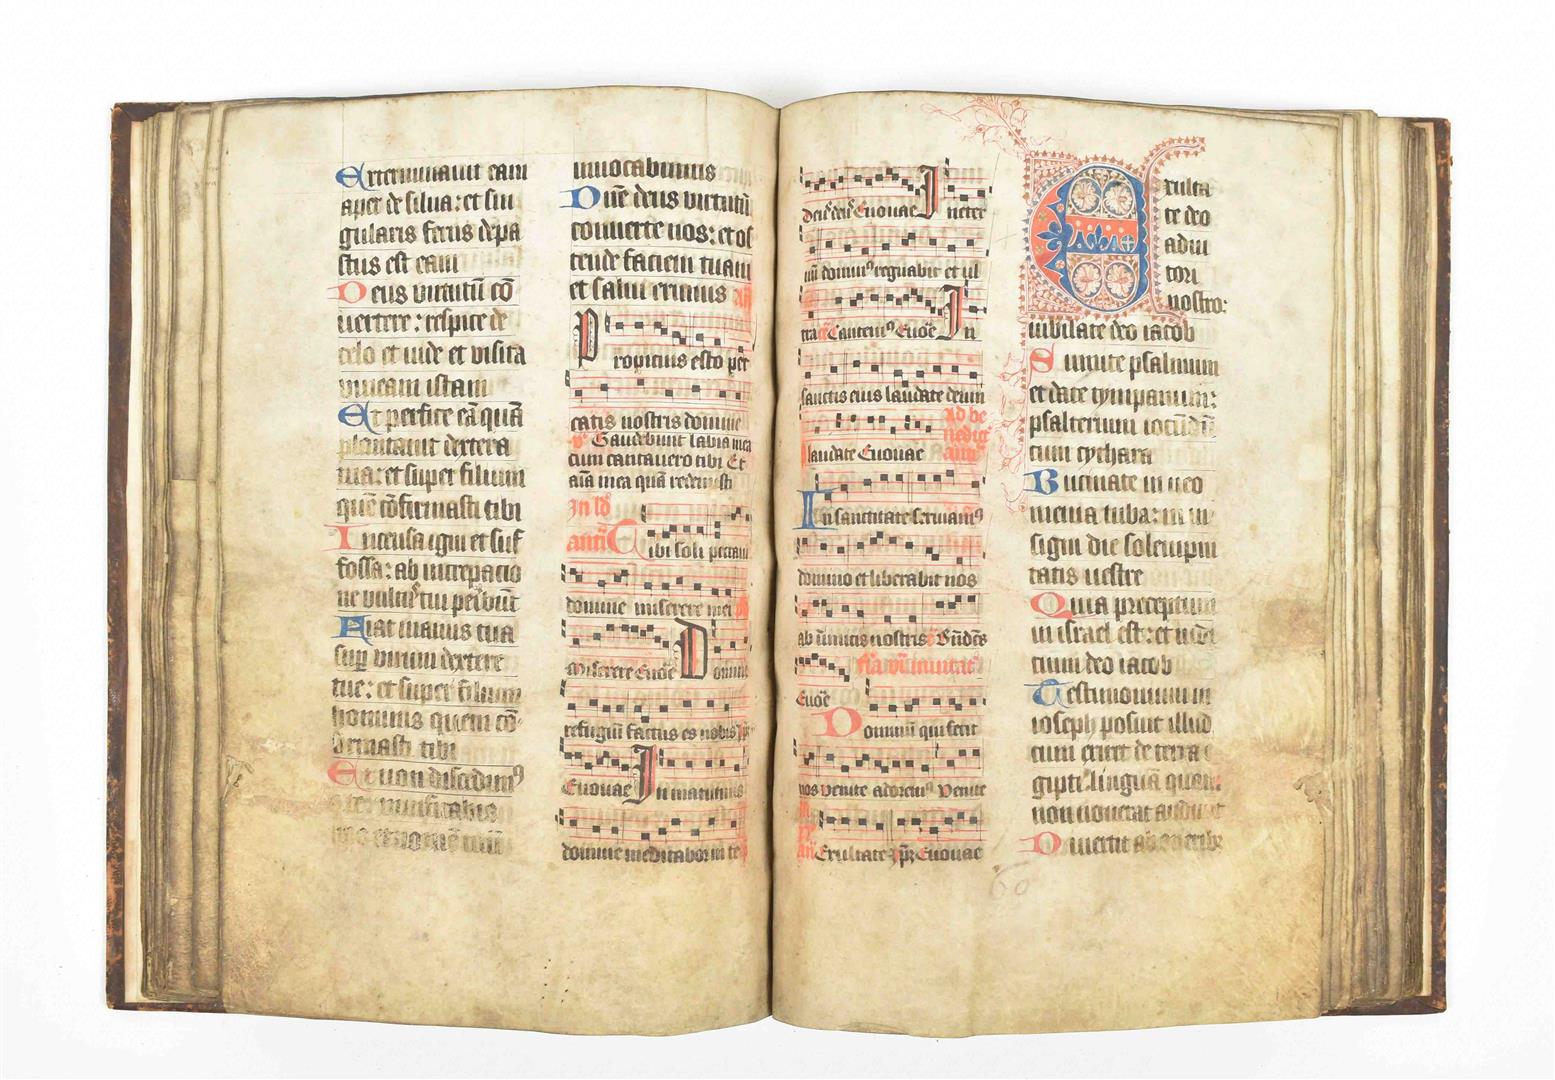 Exterminauit eam
aper de silua: et sin
gularis ferus depa
stus est eam
Deus uirtutū cō
uertere: respice de
celo et uide et visita
vineam istam
Et perfice eā quā
plantauit dextera
tua: et super filium
quē cōfirmasti tibi
Incensa igni et suf
fossa: ab increpacio
ne vult⁹ tui peribūt
Fiat manus tua
sup virum dextere
tue: et super filium
hominis quem cō
firmasti tibi
Et non discedim⁹
a te: viuificabis
nos et nomē tuū
inuocabimus
Dn̄e deus virtutū
conuerte nos: et os
tende faciem tuam
et salui erimus an̄
Propicius esto pec
catis nostris domine
v̄ Gaudebunt labia mea
cum cantauero tibi Et
aīa mea quā redemisti
In ld̄
antī Tibi soli peccaui
domine miserere mei p̄
Miserere Euoue Domine
refugiū factus es nobis
Euouae In matutinis
domine meditabor in te p̄
Euouae In eter
nū domin⁹ regnabit et ul
tra Cantem⁹ Euoūe In
sanctis eius laudate deum
laudate Euouae Ad be
nedic
In sanctitate seruiam⁹
domino et liberabit nos
ab inimicis nostris
Euoūe
Dominū qui fecit
nos venite adorem⁹ Venite
an̄ Exultate Euouae
60
Exulta
te deo
adiu
tori
nostro:
iubilate deo iacob
Sumite psalmum
et date tympanum:
psalterium iocundū
cum cythara
Bucinate in neo
menia tuba: in in
signi die solempni
tatis uestre
Quia preceptum
in israel est: et iudi
cium deo iacob
Testimonium in
ioseph posuit illud
cum exiret de terra e
gipti: linguā quam
non nouerat audiuit
Diuertit ab oneribꝫ